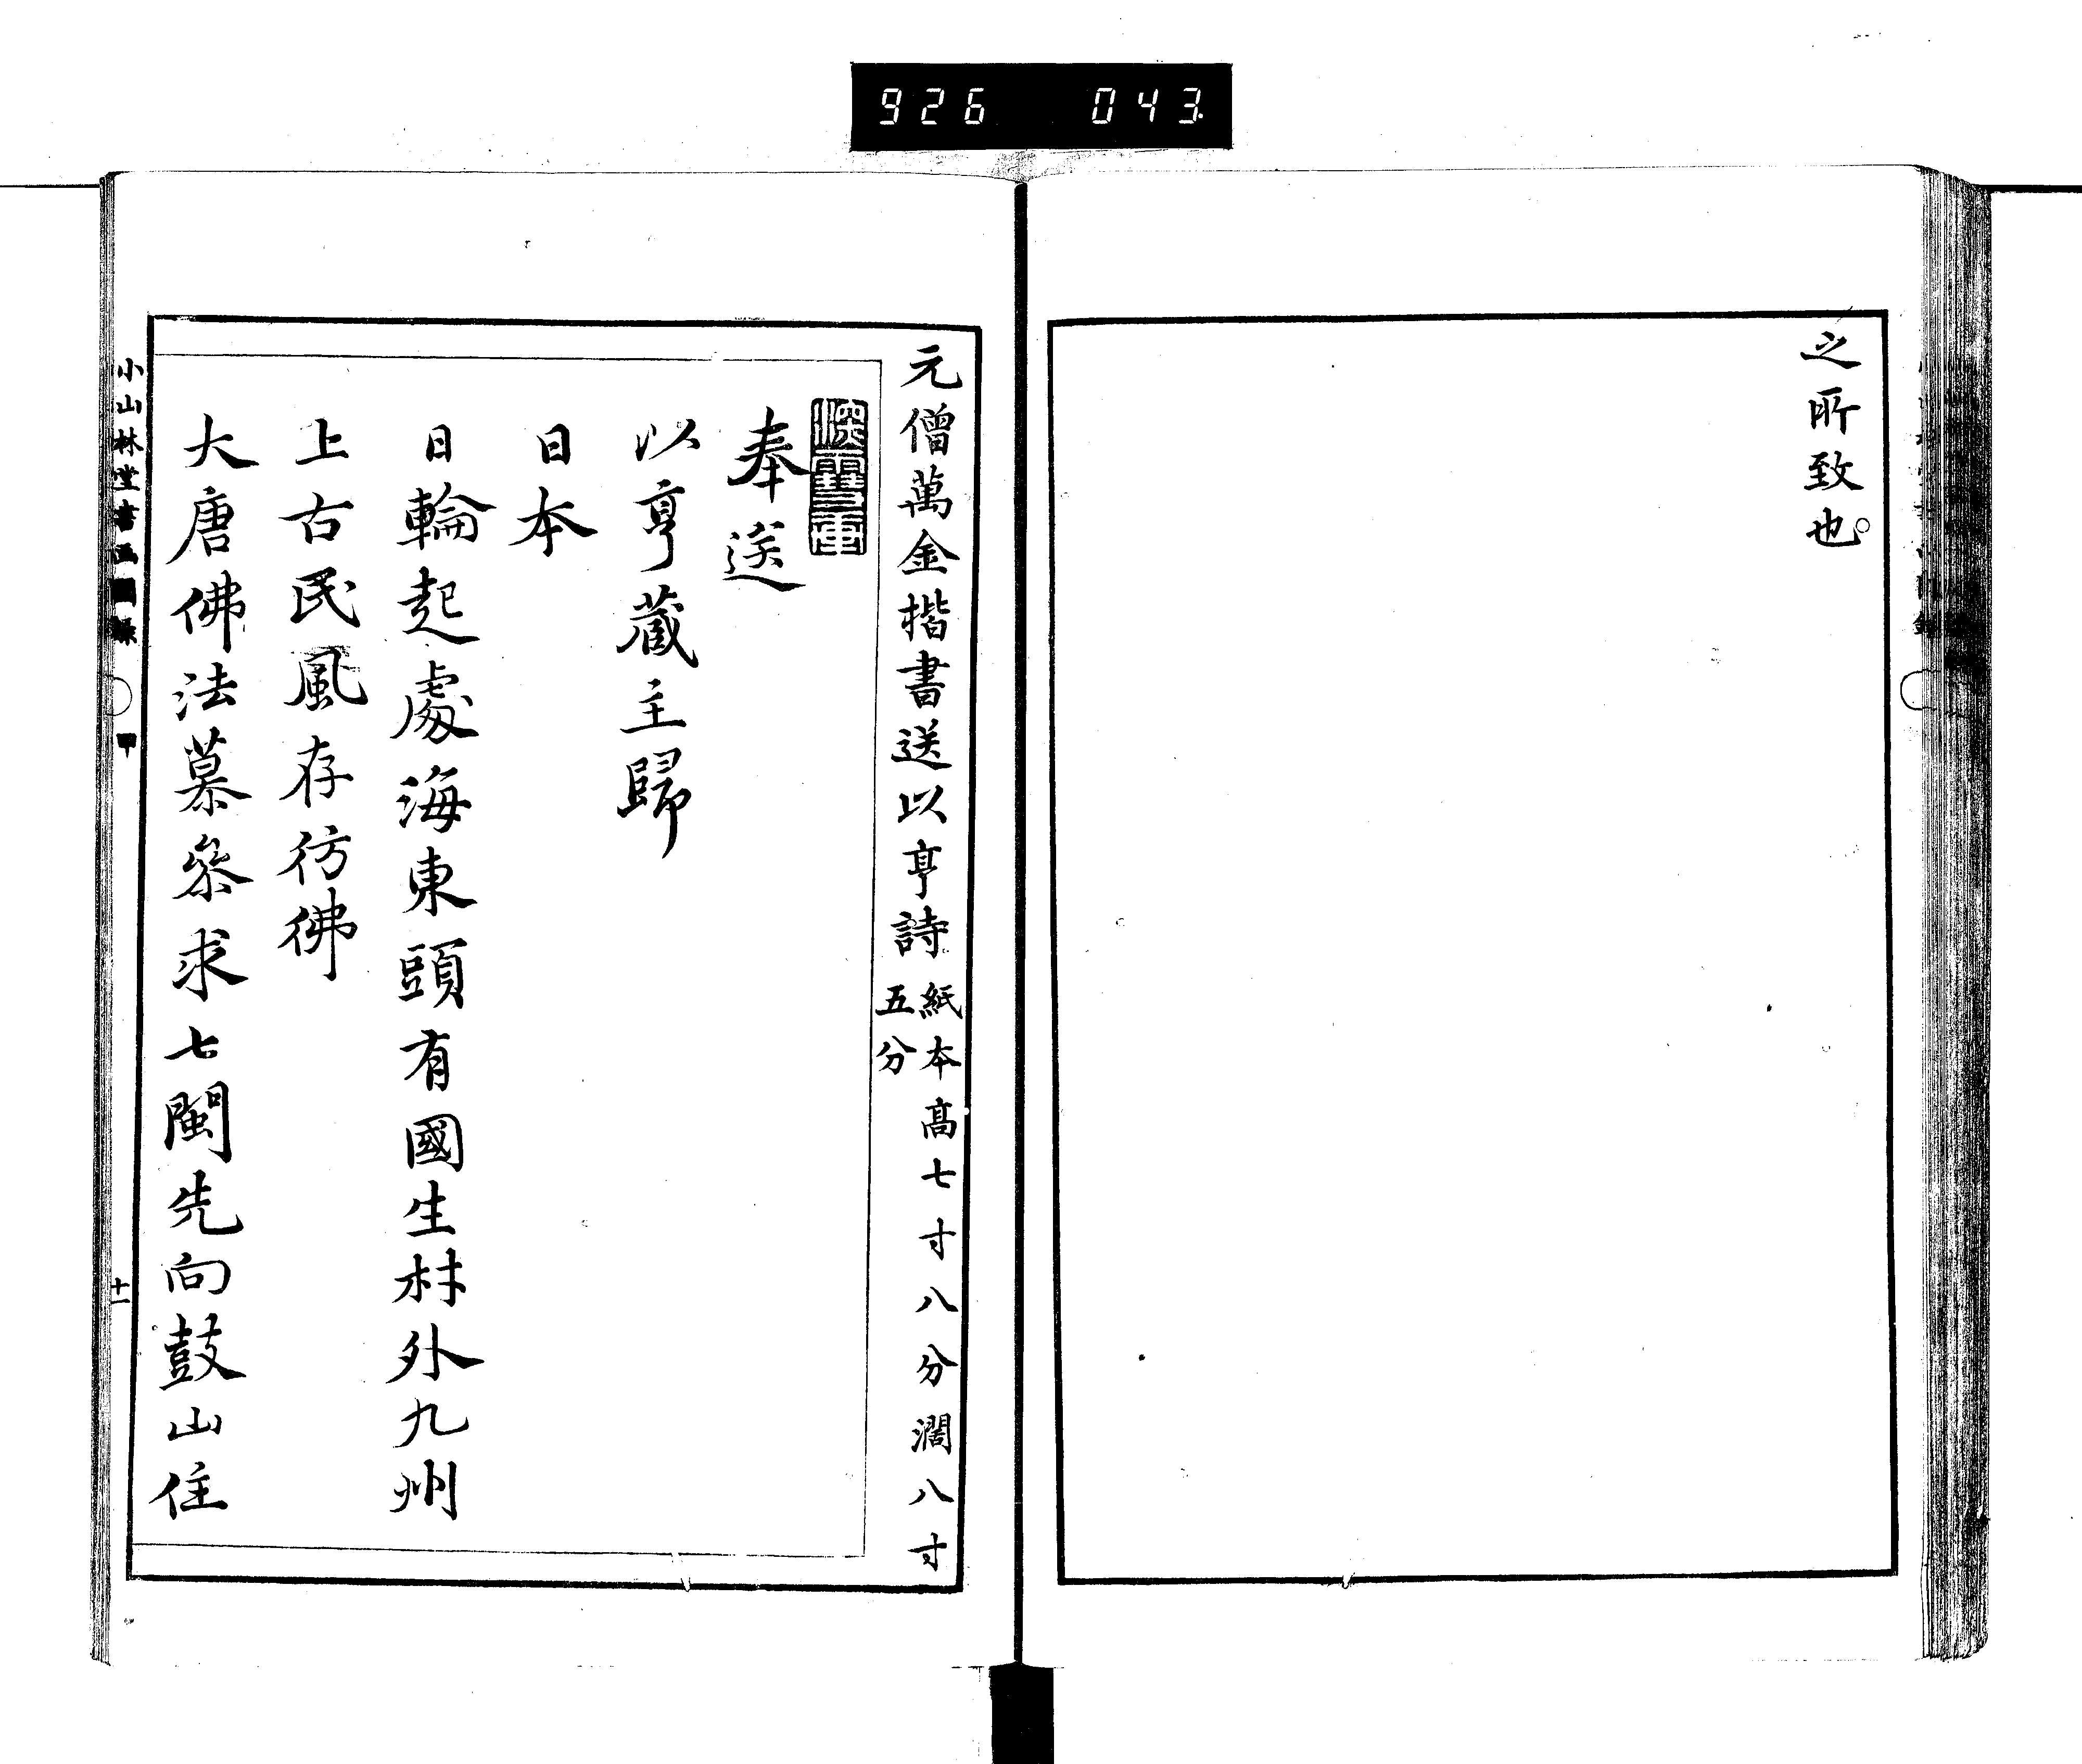 926 043
之所致也。
元僧萬金楷書送以亨詩
紙本高七寸八分濶八寸
五分
奉送
以亨藏主歸
日本
日輪起處海東頭有國生材外九州
上古民風存彷彿
大唐佛法慕參求七閩先向鼓山住
小山林堂書画圖錄
甲
十一